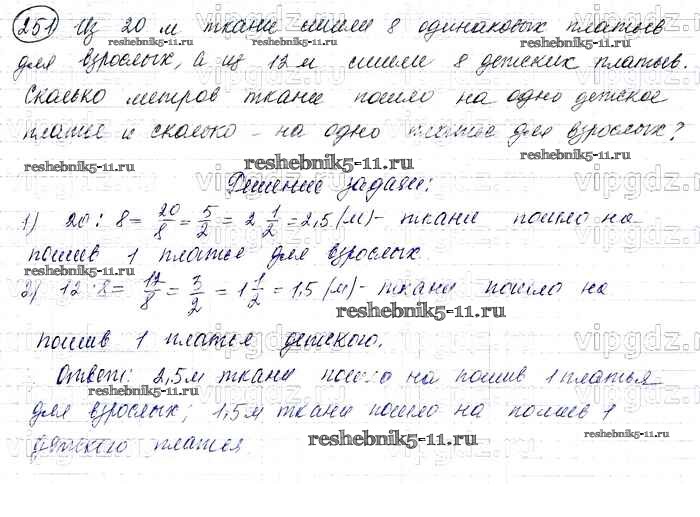 251 Из 20 м ткани сшили 8 одинаковых платьев
reshebnik5-11.ru reshebnik5-11.ru
для взрослых, а из 12 м сшили 8 детских платьев.
Сколько метров ткани пошло на одно детское
платье и сколько – на одно платье для взрослых?
reshebnik5-11.ru reshebnik5-11.ru reshebnik5-11.ru
vipgdz.ru vipgdz.ru
Решение задачи:
1) 20 : 8 = 20/8 = 5/2 = 2 1/2 = 2,5 (м) - ткани пошло на
пошив 1 платье для взрослых.
reshebnik5-11.ru reshebnik5-11.ru
2) 12 : 8 = 12/8 = 3/2 = 1 1/2 = 1,5 (м) - ткани пошло на
reshebnik5-11.ru
пошив 1 платья детского.
Ответ: 2,5 м ткани пошло на пошив 1 платья
для взрослых; 1,5 м ткани пошло на пошив 1
детского платья
reshebnik5-11.ru